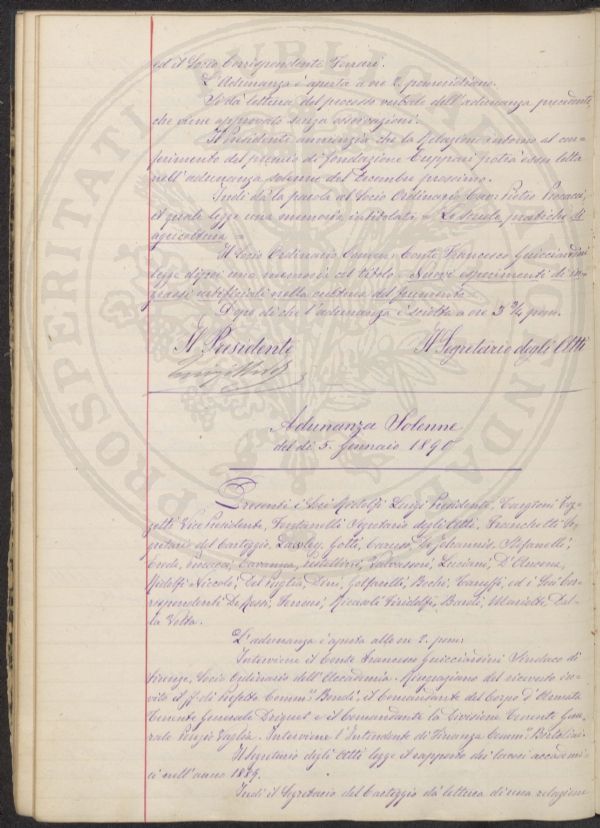 ed il Socio Corrispondente Ferrari.
L'Adunanza è aperta a ore 2 pomeridiane.
Si dà lettura del processo verbale dell'adunanza precedente
che viene approvato senza osservazioni.
Il Presidente annunzia che la Relazione intorno al con-
ferimento del premio di fondazione Cuppari potrà esser letta
nell'adunanza solenne del Decembre prossimo.
Indi dà la parola al Socio Ordinario Cav. Pietro
il quale legge una memoria intitolata = Le scuole pratiche di
agricoltura =
Il Socio Ordinario Conte Francesco Guicciardini
legge dipoi una memoria col titolo = Nuovi esperimenti di in-
grassi artificiali nella cultura del frumento
Dopo di che l'adunanza è sciolta a ore 3 3/4 pom.
Il Presidente
Il Segretario degli Atti
Luigi Ridolfi
Adunanza Solenne
del dì 5. Gennaio 1890
Presenti i Soci Ridolfi Luigi Presidente, Targioni Toz-
zetti Vice Presidente, Fontanelli Segretario degli Atti, Franchetti Se-
gretario del Carteggio, Lawley, Gotti, Caruso, De Johannis, Stefanelli,
Luciani, D'Ancona,
Ridolfi Niccolò, Del Puglia, Dini, Golfarelli, Bechi, Caruffi, ed i Soci Cor-
rispondenti De Rossi, Ferroni, Ricasoli Firidolfi, Bardi, Mariotti, Del-
la Volta.
L'adunanza è aperta alle ore 2. pom:
Interviene il Conte Francesco Guicciardini Sindaco di
Firenze, Socio Ordinario dell'Accademia. Ringraziano del ricevuto in-
vito il ff. di Prefetto Comm. Bondi, il Comandante del Corpo d'Armata
Tenente Generale Driquet e il Comandante la Divisione Tenente Gene-
rale Ponzio Vaglia. Interviene l'Intendente di Finanza Comm. Bertolini.
Il Segretario degli Atti legge il rapporto dei lavori accademi-
ci nell'anno 1889.
Indi il Segretario del Carteggio dà lettura di una relazione
PROSPERITATI PUBLICAE AUGENDAE